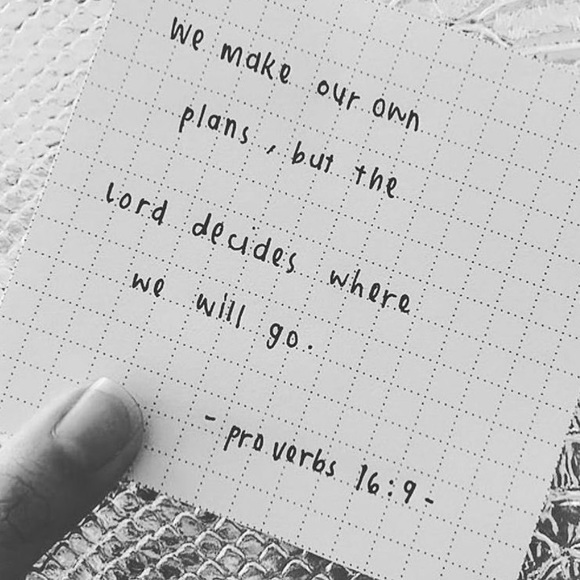 We make our own
plans, but the
Lord decides where
we will go.
- proverbs 16:9 -